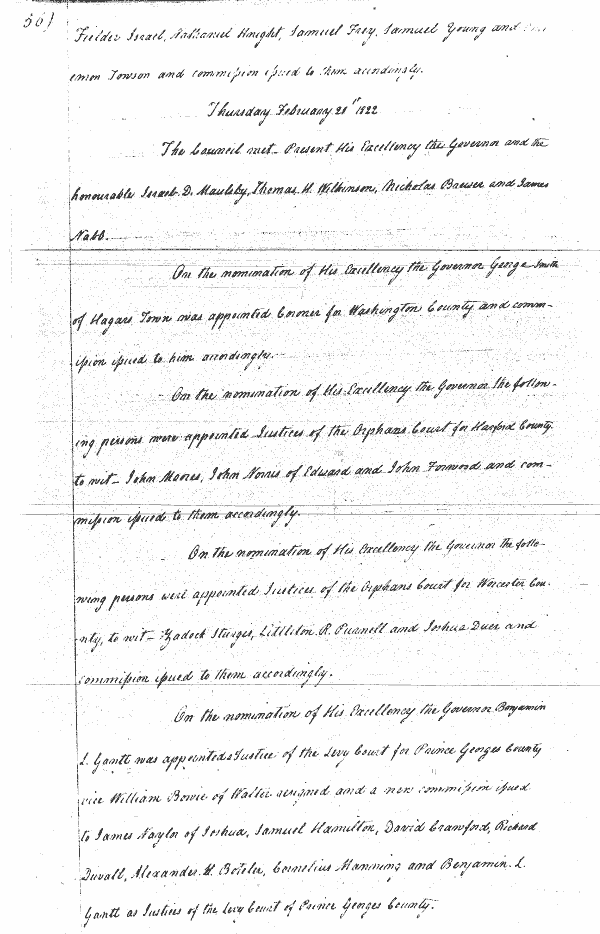 561
Fielder Israel, Nathaniel Knight, Samuel Frey, Samuel Young and
emon Towson and commission issued to them accordingly.
Thursday February 21st 1822
The Council met – Present His Excellency the Governor and the
honourable Israel D. Maulsby, Thomas H. Wilkinson, Nicholas Brewer and James
Nabb.
On the nomination of His Excellency the Governor George Smith
of Hagars Town was appointed Coroner for Washington County and comm-
ission issued to him accordingly.
On the nomination of His Excellency the Governor the follow-
ing persons were appointed Justices of the Orphans Court for Harford County
to wit – John Moores, John Norris of Edward and John Forwood and com-
mission issued to them accordingly.
On the nomination of His Excellency the Governor the follo-
wing persons were appointed Justices of the Orphans Court for Worcester Cou-
nty, to wit – Zadock Sturges, Littleton R. Purnell and Joshua Duer and
commission issued to them accordingly.
On the nomination of His Excellency the Governor Benjamin
L. Gantt was appointed Justice of the Levy Court for Prince Georges County
vice William Bowie of Walter resigned and a new commission issued
to James Naylor of Joshua, Samuel Hamilton, David Crawford, Richard
Duvall, Alexander H. Boteler, Cornelius Manning and Benjamin L.
Gantt as Justices of the Levy Court of Prince Georges County.